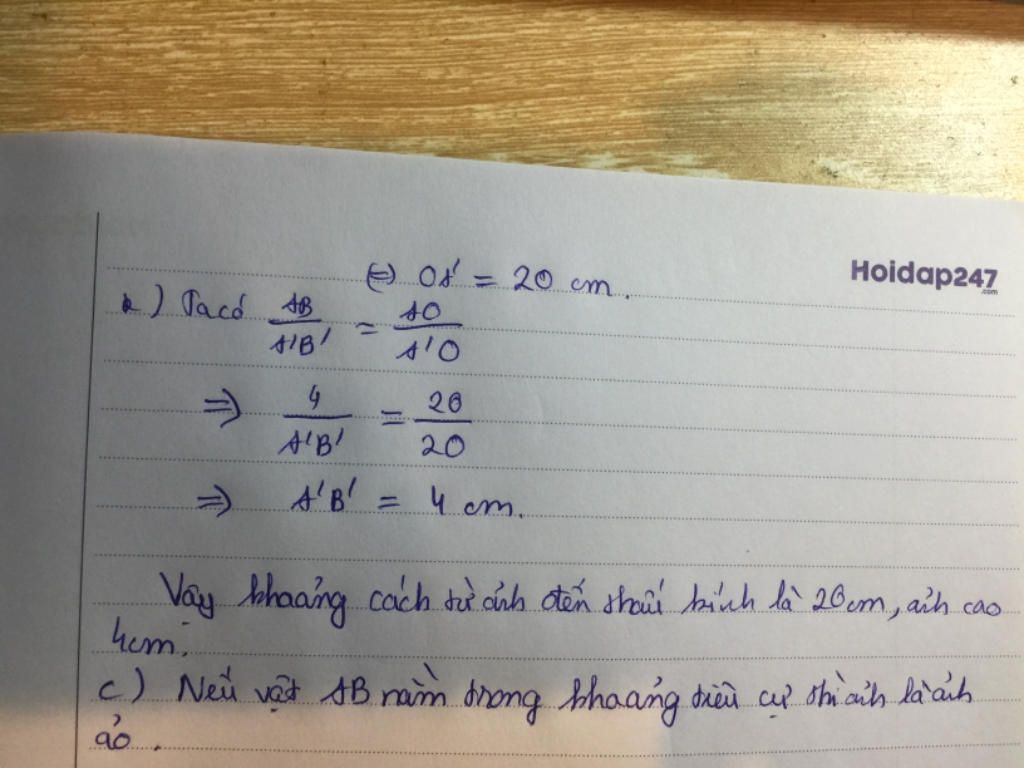 (=) OA' = 20 cm.
Hoidap247
.com
b) Ta có AB/A'B' = AO/A'O
=> 4/A'B' = 20/20
=> A'B' = 4 cm.
Vậy khoảng cách từ ảnh đến thấu kính là 20cm, ảnh cao
4cm.
c) Nếu vật AB nằm trong khoảng tiêu cự thì ảnh là ảnh
ảo.